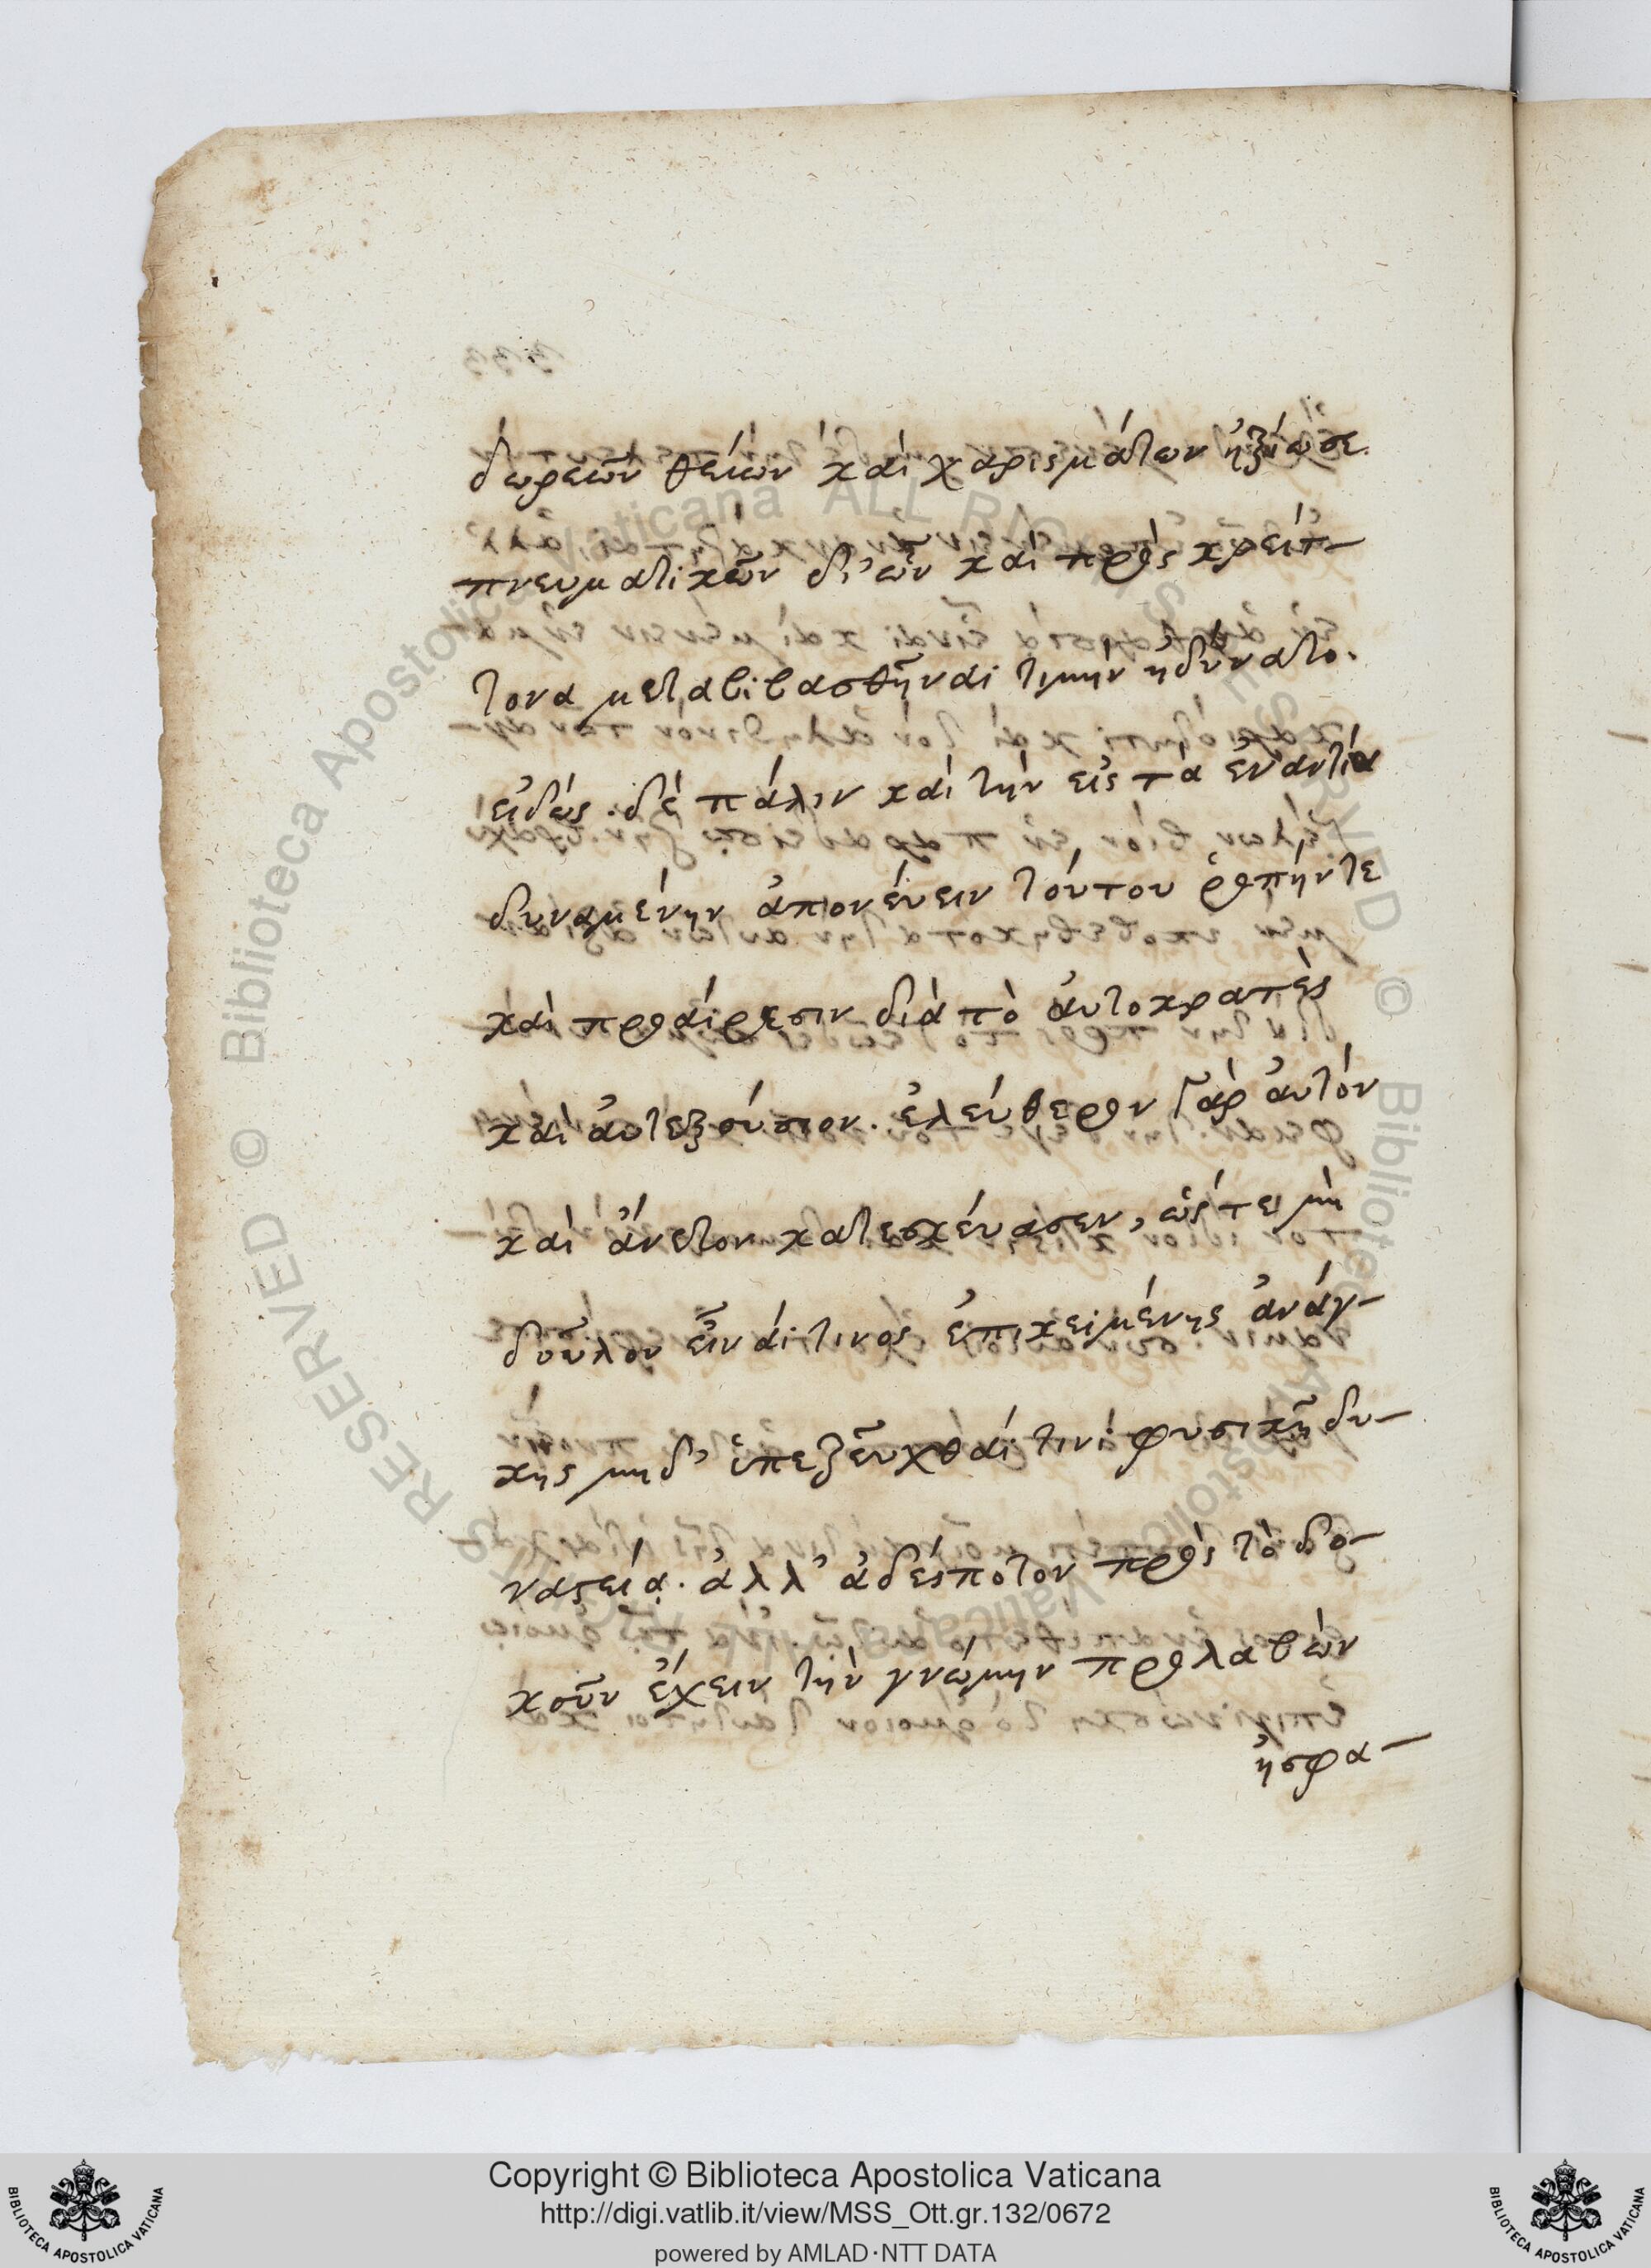 δωρεῶν θείων καὶ χαρισμάτων ἠξίωσε
πνευματικῶν δι' ὧν καὶ πρὸς κρείτ-
τονα μεταβιβασθῆναι τιμὴν ἠδύνατο.
εἰδὼς δὲ πάλιν καὶ τὴν εἰς τὰ ἐναντία
δυναμένην ἀπονεύειν τούτου ῥοπήν τε
καὶ προαίρεσιν διὰ τὸ αὐτοκρατὲς
καὶ αὐτεξούσιον. ἐλεύθερον γὰρ αὐτὸν
καὶ ἄνετον κατεσκεύασεν, ὥς τε μὴ
δοῦλον εἶναί τινος ἐπικειμένης ἀνάγ-
κης μηδ' ὑπεζεῦχθαί τινι φυσικῇ δυ-
ναστείᾳ. ἀλλ' ἀδέσποτον πρὸς τὸ δο-
κοῦν ἔχειν τὴν γνώμην προλαβὼν
ἠσφα-
Copyright © Biblioteca Apostolica Vaticana
http://digi.vatlib.it/view/MSS_Ott.gr.132/0672
powered by AMLAD·NTT DATA
BIBLIOTECA APOSTOLICA VATICANA
BIBLIOTECA APOSTOLICA VATICANA